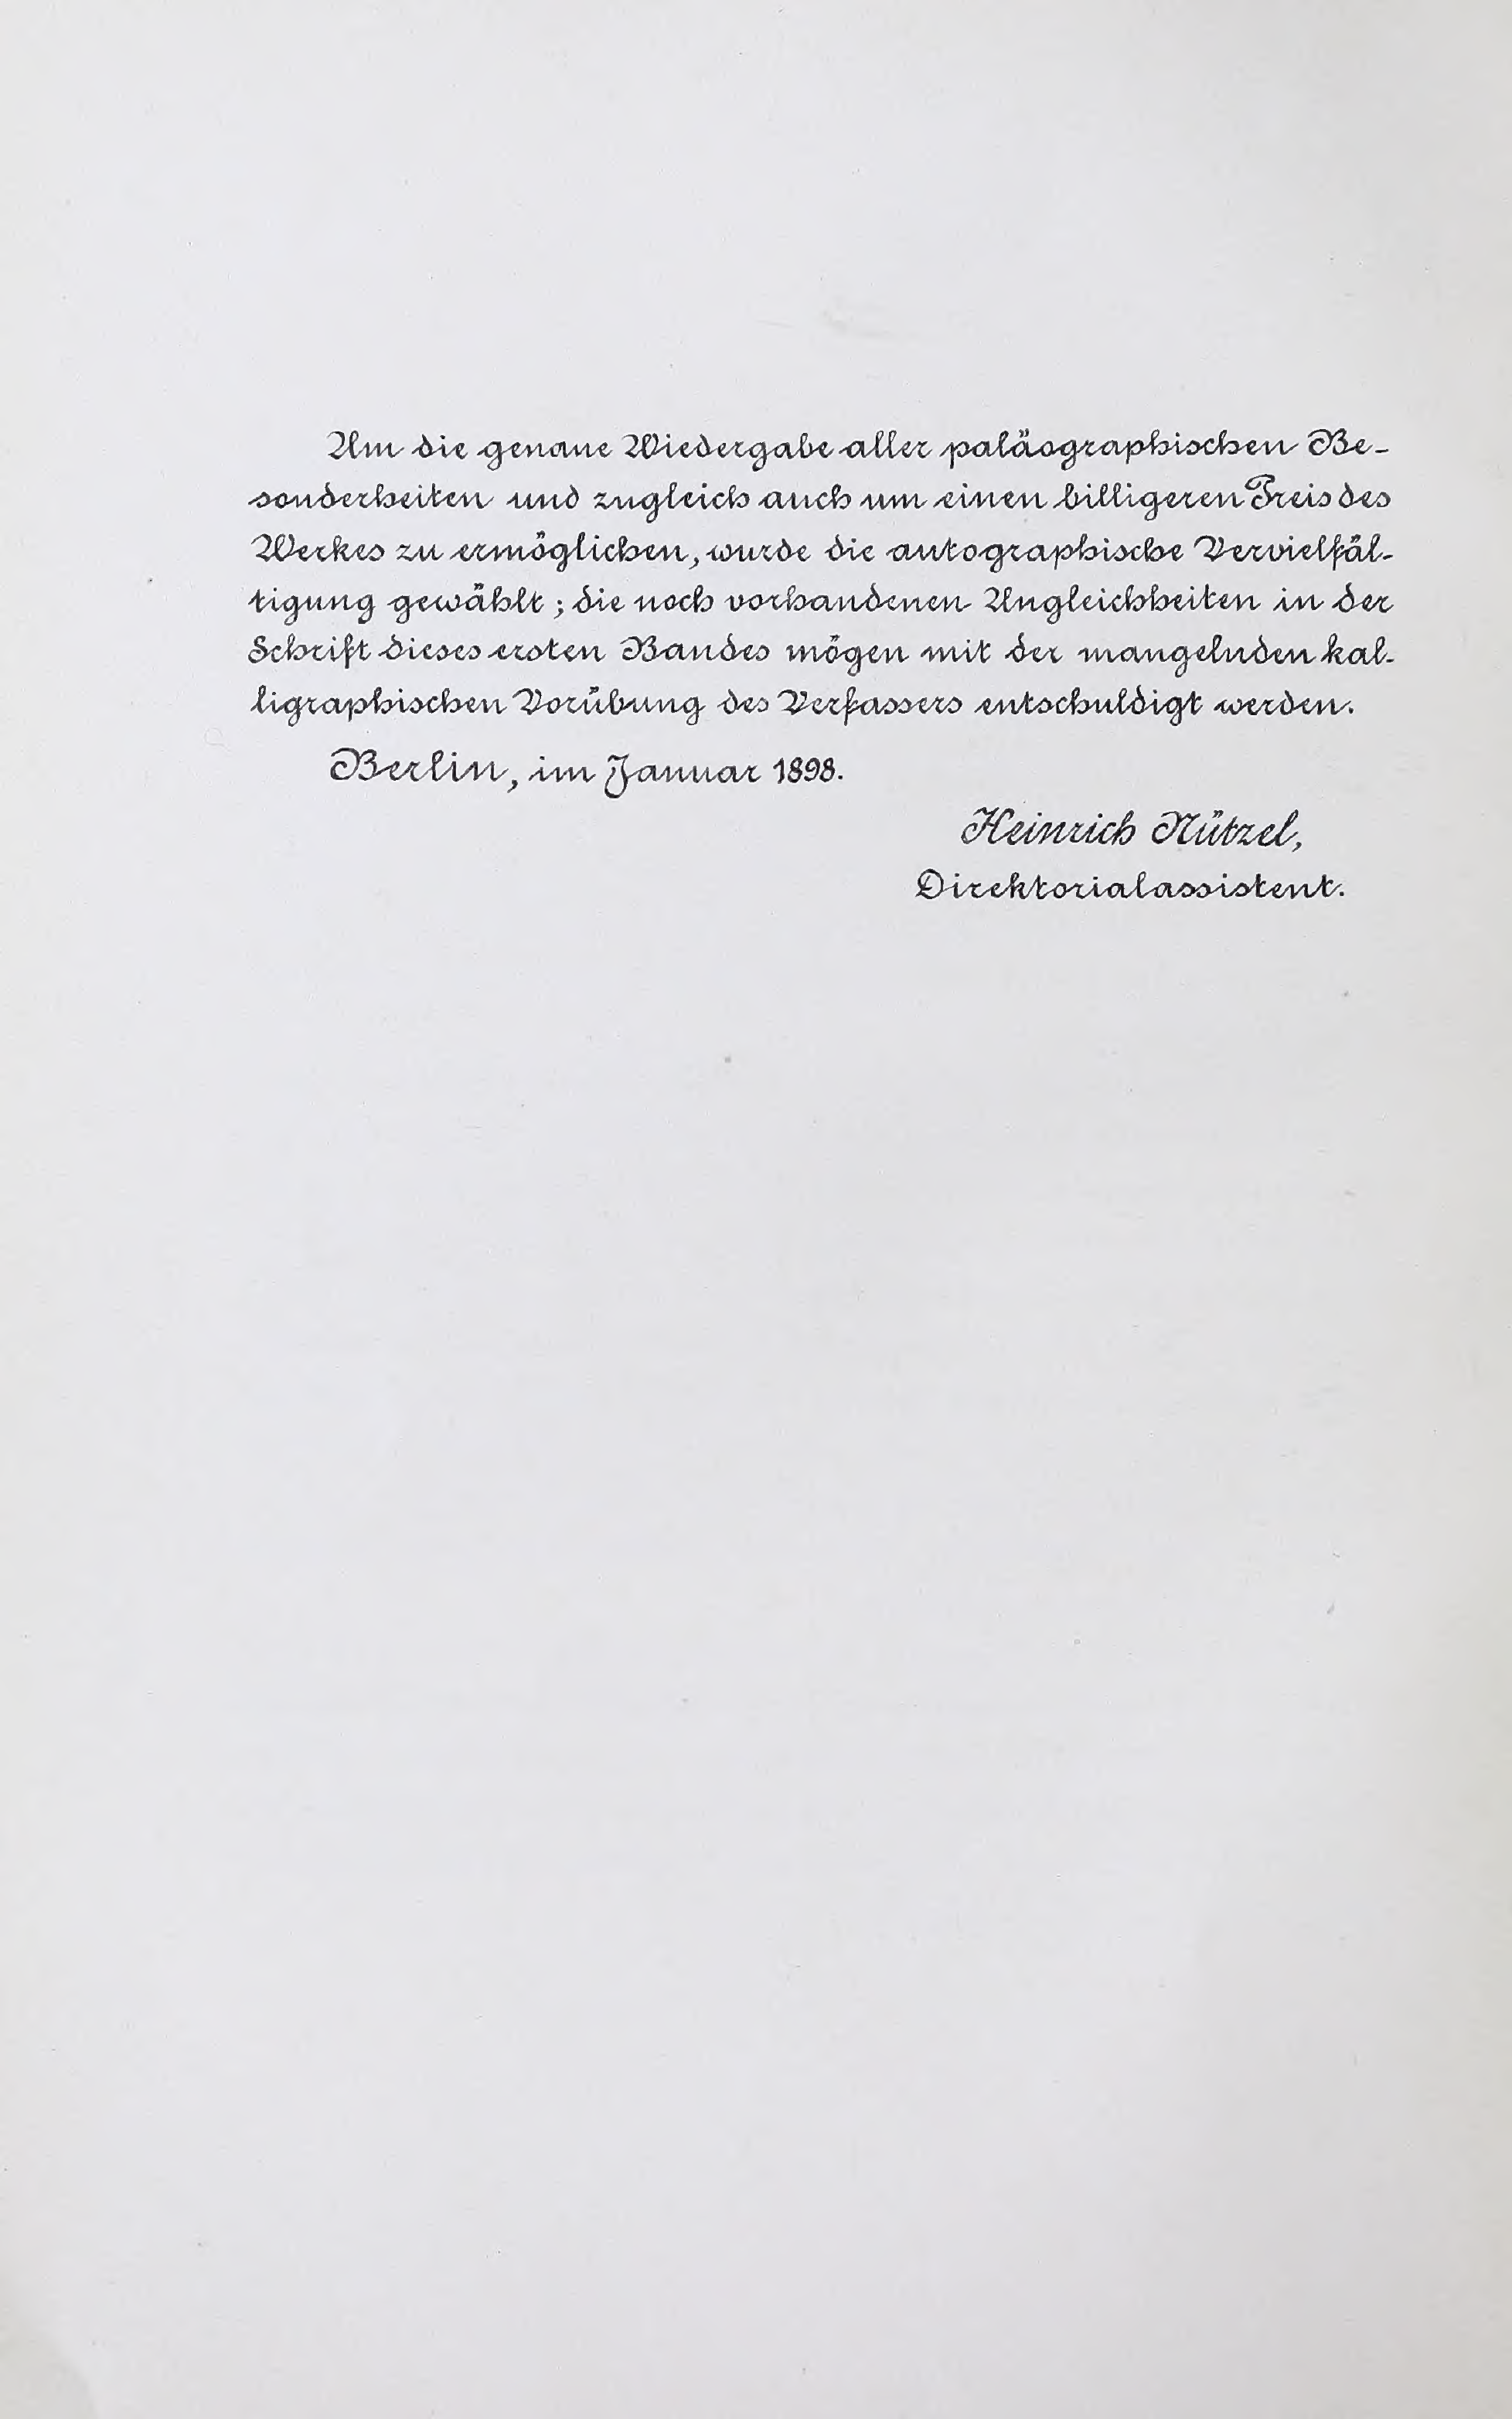 Um die genaue Wiedergabe aller paläographischen Be-
sonderheiten und zugleich auch um einen billigeren Preis des
Werkes zu ermöglichen, wurde die autographische Vervielfäl-
tigung gewählt; die noch vorhandenen Ungleichheiten in der
Schrift dieses ersten Bandes mögen mit der mangelnden kal-
ligraphischen Vorübung des Verfassers entschuldigt werden.
Berlin, im Januar 1898.
Heinrich Nützel,
Direktorialassistent.